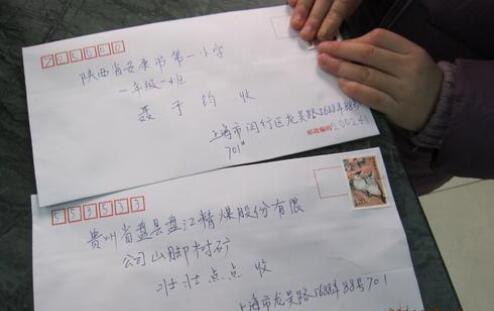 陕西省安康市第一小学
一年级一班
聂于钧 收
上海市闵行区龙吴路5688弄88号
701
邮政编码 200241
553533
贵州省盘县盘江精煤股份有限
公司山脚树矿
壮壮点点 收
上海市龙吴路5688弄88号701